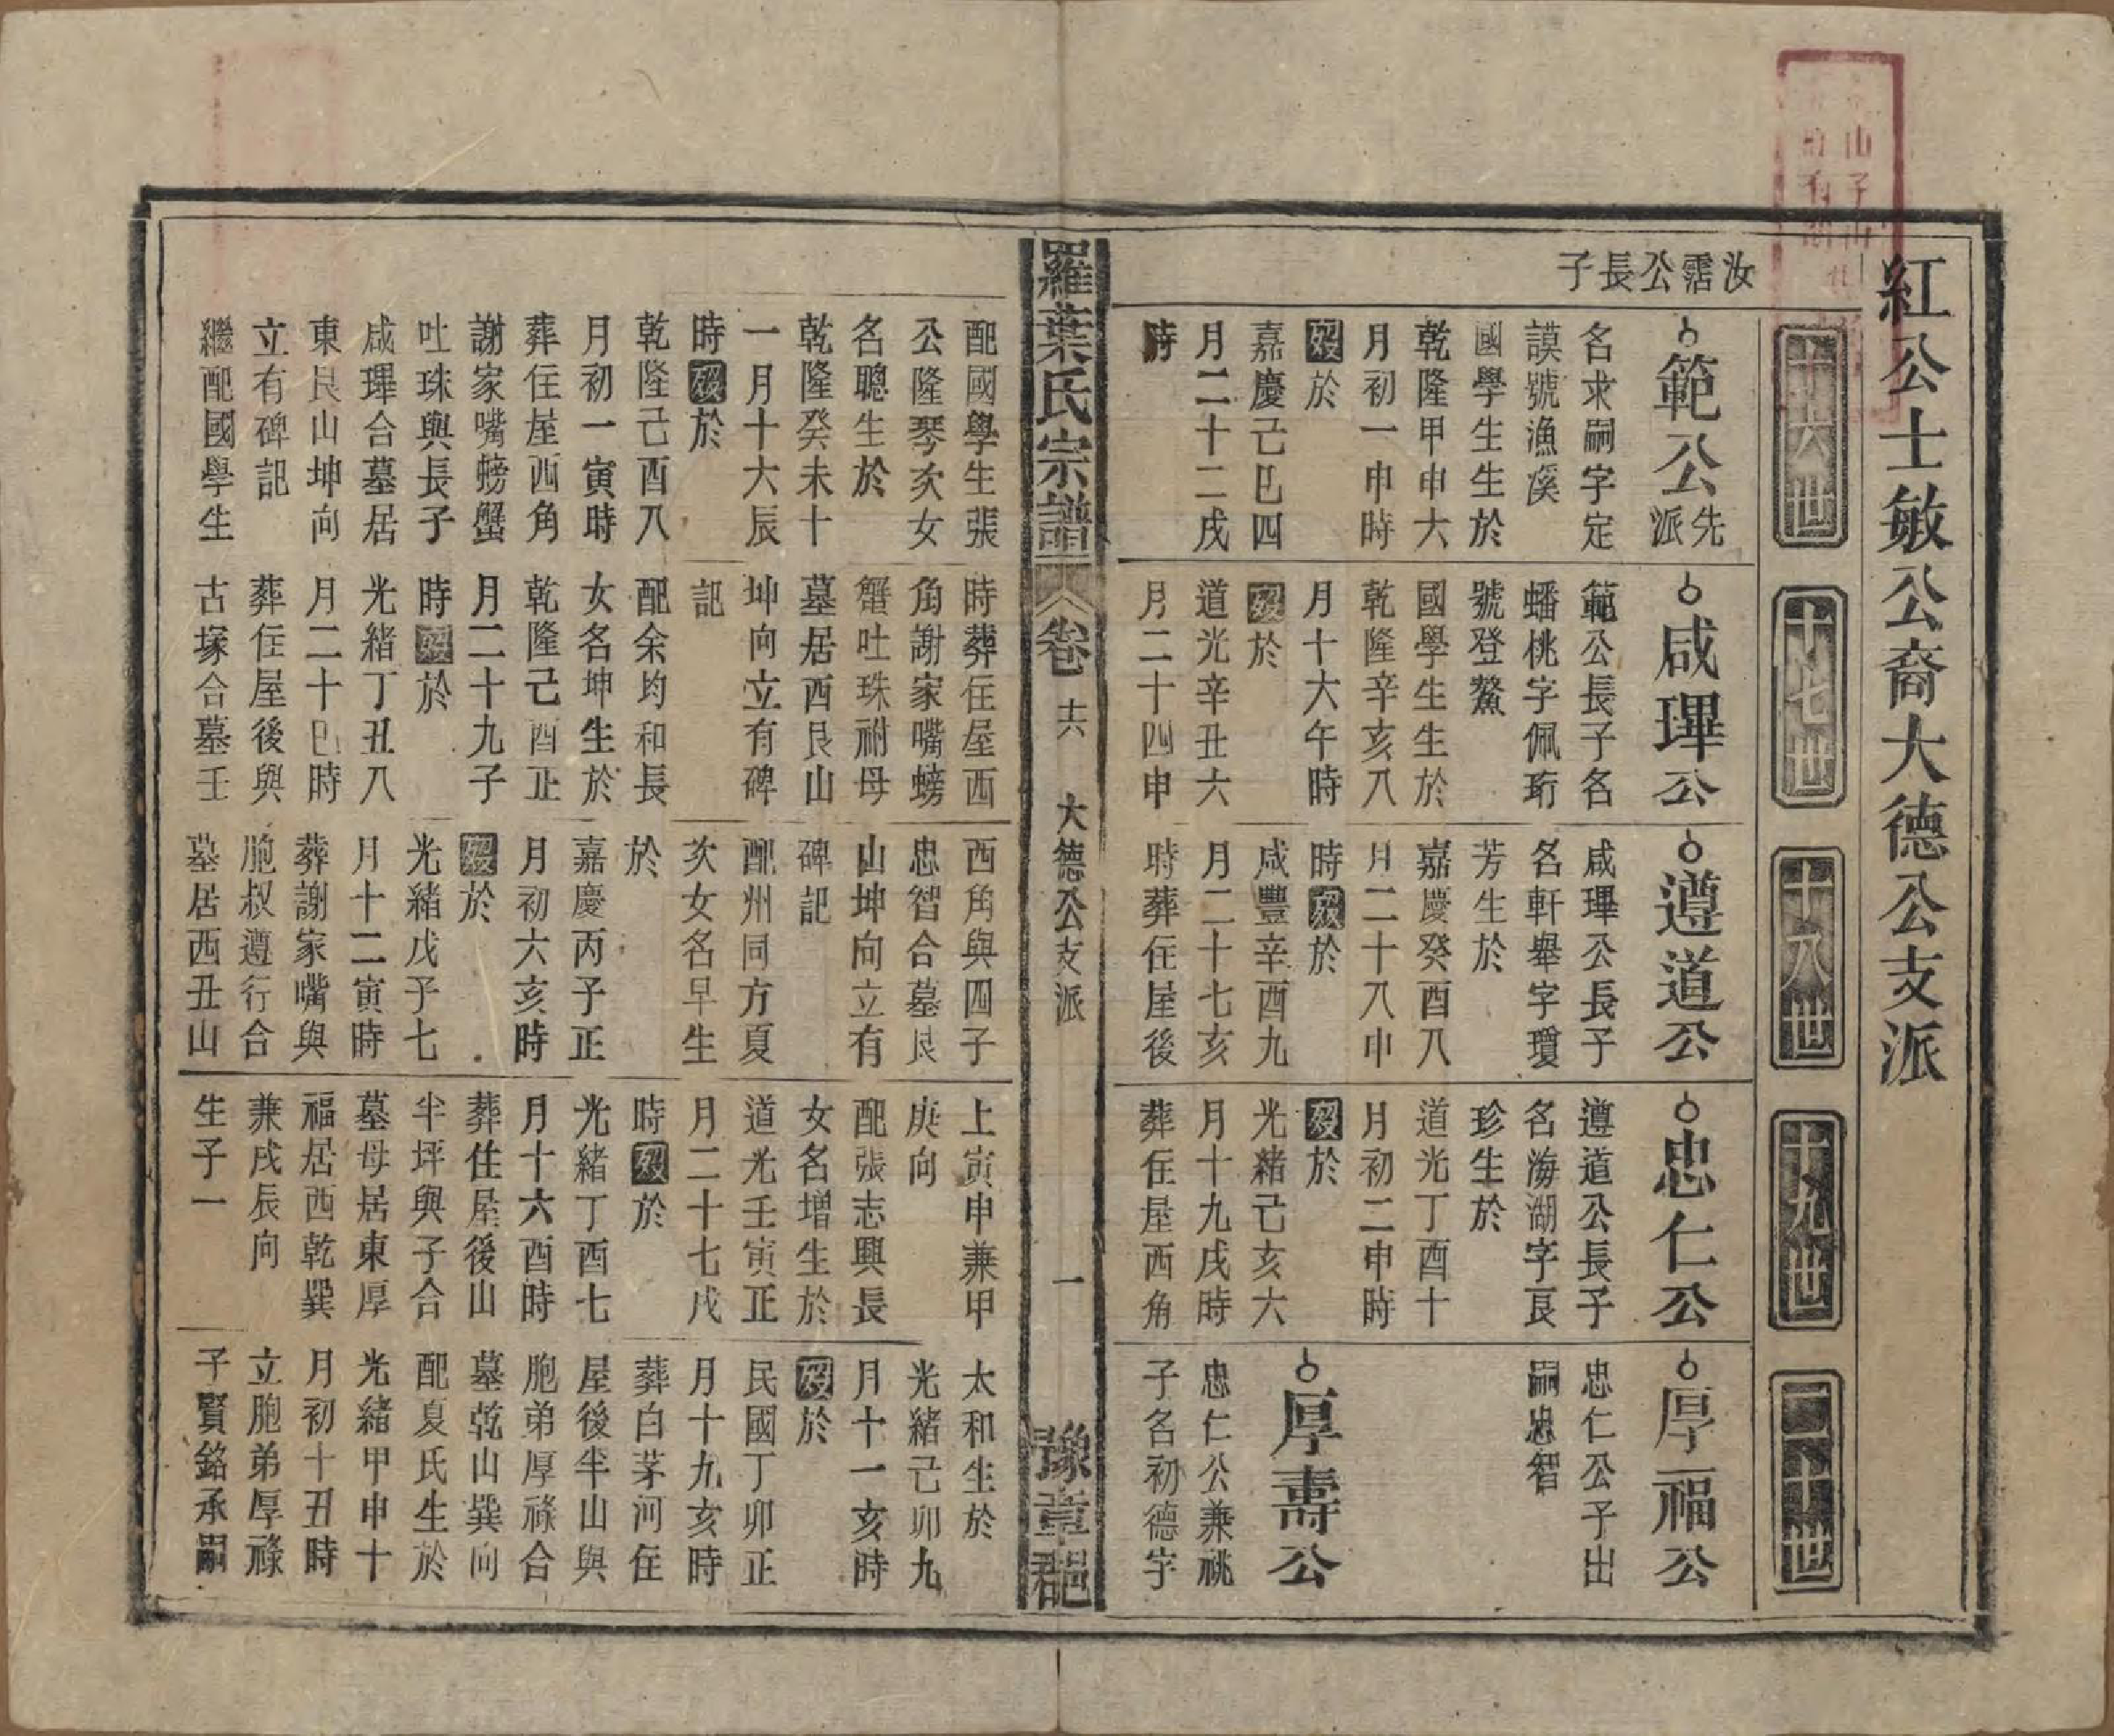 紅公士敏公裔大德公支派
十六世
十七世
十八世
十九世
二十世
汝霑公長子
範公先派
名求嗣字定
謨號漁溪
國學生生於
乾隆甲申六
月初一申時
歿於
嘉慶己巳四
月二十二戌
時
配國學生張
公隆琴次女
名聰生於
乾隆癸未十
一月十六辰
時歿於
乾隆己酉八
月初一寅時
葬住屋西角
謝家嘴螃蟹
吐珠與長子
咸琿合墓居
東艮山坤向
立有碑記
繼配國學生
咸琿公
範公長子名
蟠桃字佩珩
號登鰲
國學生生於
乾隆辛亥八
月十六午時
歿於
道光辛丑六
月二十四申
時葬住屋西
角謝家嘴螃
蟹吐珠祔母
墓居西艮山
坤向立有碑
記
配余均和長
女名坤生於
乾隆己酉正
月二十九子
時歿於
光緒丁丑八
月二十巳時
葬住屋後與
古塚合墓壬
遵道公
咸琿公長子
名軒舉字瓊
芳生於
嘉慶癸酉八
月二十八申
時歿於
咸豐辛酉九
月二十七亥
時葬住屋後
西角與四子
忠智合墓艮
山坤向立有
碑記
配州同方夏
次女名早生
於
嘉慶丙子正
月初六亥時
歿於
光緒戊子七
月十二寅時
葬謝家嘴與
胞叔遵行合
墓居西丑山
忠仁公
遵道公長子
名海湖字艮
珍生於
道光丁酉十
月初二申時
歿於
光緒己亥六
月十九戌時
葬住屋西角
上寅申兼甲
庚向
配張志興長
女名增生於
道光壬寅正
月二十七戌
時歿於
光緒丁酉七
月十六酉時
葬住屋後山
半坪與子合
墓母居東厚
福居西乾巽
兼戌辰向
生子一
厚福公
忠仁公子出
嗣忠智
厚壽公
忠仁公兼祧
子名初德字
太和生於
光緒己卯九
月十一亥時
歿於
民國丁卯正
月十九亥時
葬白茅河住
屋後半山與
胞弟厚祿合
墓乾山巽向
配夏氏生於
光緒甲申十
月初十丑時
立胞弟厚祿
子賢銘承嗣
羅葉氏宗譜
卷十六
大德公支派
一
豫章郡